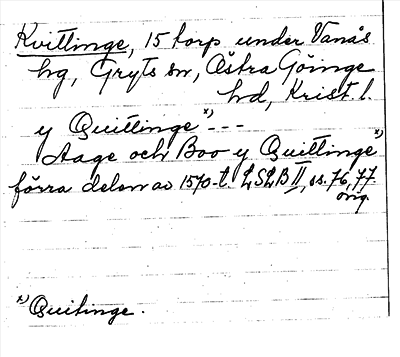 Kvittinge, 15 torp under Vanås
hg, Gryts sn, Östra Göinge
hd, Krist. l.
y Quittinge x) - - -
Aage och Boo y Quittinge x)
förra delen av 1570-t. LSLB II, ss. 76, 77.
orig.
x) Quitinge.